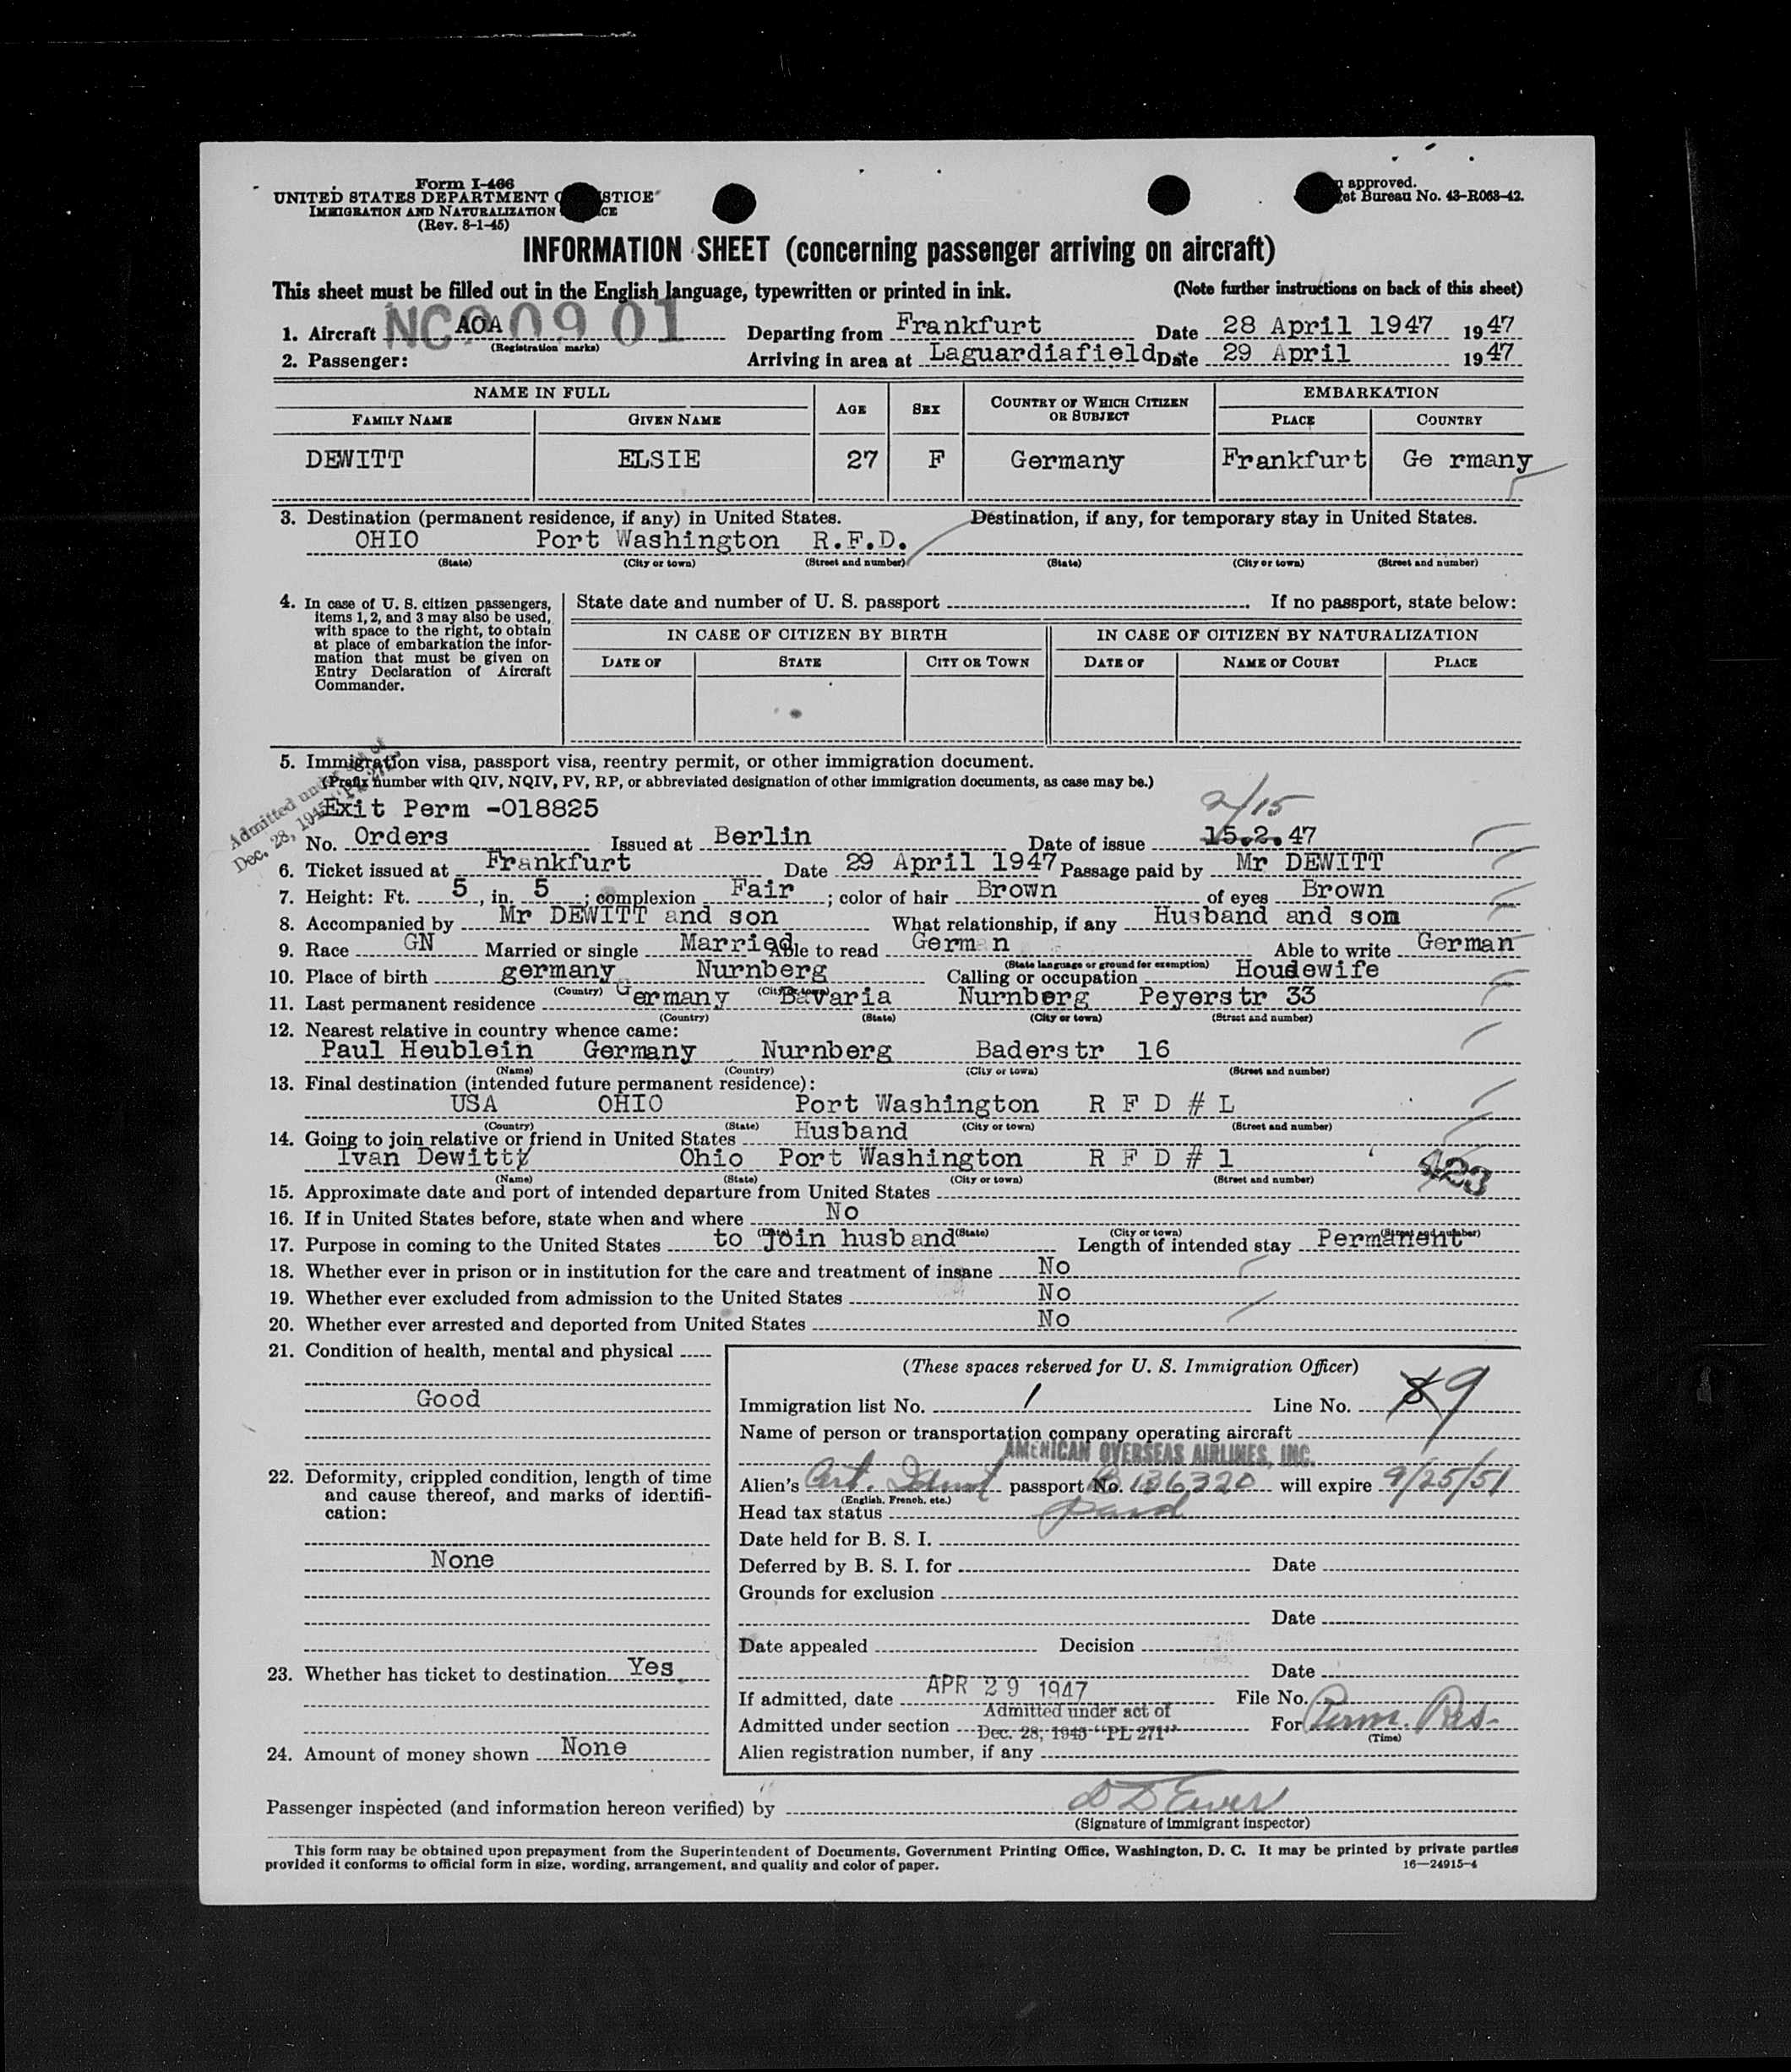 Form I-466
UNITED STATES DEPARTMENT
IMMIGRATION AND NATURALIZATION
(Rev. 8-1-45)
approved.
Bureau No. 43-R063-42.
INFORMATION SHEET (concerning passenger arriving on aircraft)
This sheet must be filled out in the English language, typewritten or printed in ink. (Note further instructions on back of this sheet)
1. Aircraft AOA Departing from Frankfurt Date 28 April 1947 1947
(Registration marks)
2. Passenger: Arriving in area at Laguardiafield Date 29 April 1947
NAME IN FULL AGE SEX COUNTRY OF WHICH CITIZEN OR SUBJECT EMBARKATION
FAMILY NAME GIVEN NAME PLACE COUNTRY
DEWITT ELSIE 27 F Germany Frankfurt Ge rmany
3. Destination (permanent residence, if any) in United States. Destination, if any, for temporary stay in United States.
OHIO Port Washington R.F.D.
(State) (City or town) (Street and number) (State) (City or town) (Street and number)
4. In case of U. S. citizen passengers,
items 1, 2, and 3 may also be used,
with space to the right, to obtain
at place of embarkation the infor-
mation that must be given on
Entry Declaration of Aircraft
Commander.
State date and number of U. S. passport . If no passport, state below:
IN CASE OF CITIZEN BY BIRTH IN CASE OF CITIZEN BY NATURALIZATION
DATE OF STATE CITY OR TOWN DATE OF NAME OF COURT PLACE
5. Immigration visa, passport visa, reentry permit, or other immigration document.
(Prefix number with QIV, NQIV, PV, RP, or abbreviated designation of other immigration documents, as case may be.)
Exit Perm -018825
2/15
No. Orders Issued at Berlin Date of issue 15.2.47
6. Ticket issued at Frankfurt Date 29 April 1947 Passage paid by Mr DEWITT
7. Height: Ft. 5, in. 5; complexion Fair; color of hair Brown of eyes Brown
8. Accompanied by Mr DEWITT and son What relationship, if any Husband and son
9. Race GN Married or single Married Able to read Germ n Able to write German
(State language or ground for exemption)
10. Place of birth germany Nurnberg Calling or occupation Houdewife
(Country) (City or town)
11. Last permanent residence Germany Bavaria Nurnberg Peyerstr 33
(Country) (State) (City or town) (Street and number)
12. Nearest relative in country whence came:
Paul Heublein Germany Nurnberg Baderstr 16
(Name) (Country) (City or town) (Street and number)
13. Final destination (intended future permanent residence):
USA OHIO Port Washington R F D # L
(Country) (State) (City or town) (Street and number)
14. Going to join relative or friend in United States Husband
Ivan Dewitt Ohio Port Washington R F D # 1
423
(Name) (State) (City or town) (Street and number)
15. Approximate date and port of intended departure from United States
16. If in United States before, state when and where No
(Date) (State) (City or town) (Street and number)
17. Purpose in coming to the United States to join husband Length of intended stay Permanent
18. Whether ever in prison or in institution for the care and treatment of insane No
19. Whether ever excluded from admission to the United States No
20. Whether ever arrested and deported from United States No
21. Condition of health, mental and physical
Good
22. Deformity, crippled condition, length of time
and cause thereof, and marks of identifi-
cation:
None
23. Whether has ticket to destination Yes
24. Amount of money shown None
(These spaces reserved for U. S. Immigration Officer)
Immigration list No. 1 Line No. 8 9
Name of person or transportation company operating aircraft
AMERICAN OVERSEAS AIRLINES, INC.
Alien's passport No. 136320 will expire 9/25/51
(English, French, etc.)
Head tax status paid
Date held for B. S. I.
Deferred by B. S. I. for Date
Grounds for exclusion
Date
Date appealed Decision
Date
If admitted, date APR 29 1947 File No.
Admitted under act of
Admitted under section Dec. 28, 1945 "PL 271" For Perm. Res
(Time)
Alien registration number, if any
Passenger inspected (and information hereon verified) by
(Signature of immigrant inspector)
This form may be obtained upon prepayment from the Superintendent of Documents, Government Printing Office, Washington, D. C. It may be printed by private parties
provided it conforms to official form in size, wording, arrangement, and quality and color of paper. 16—24915-4